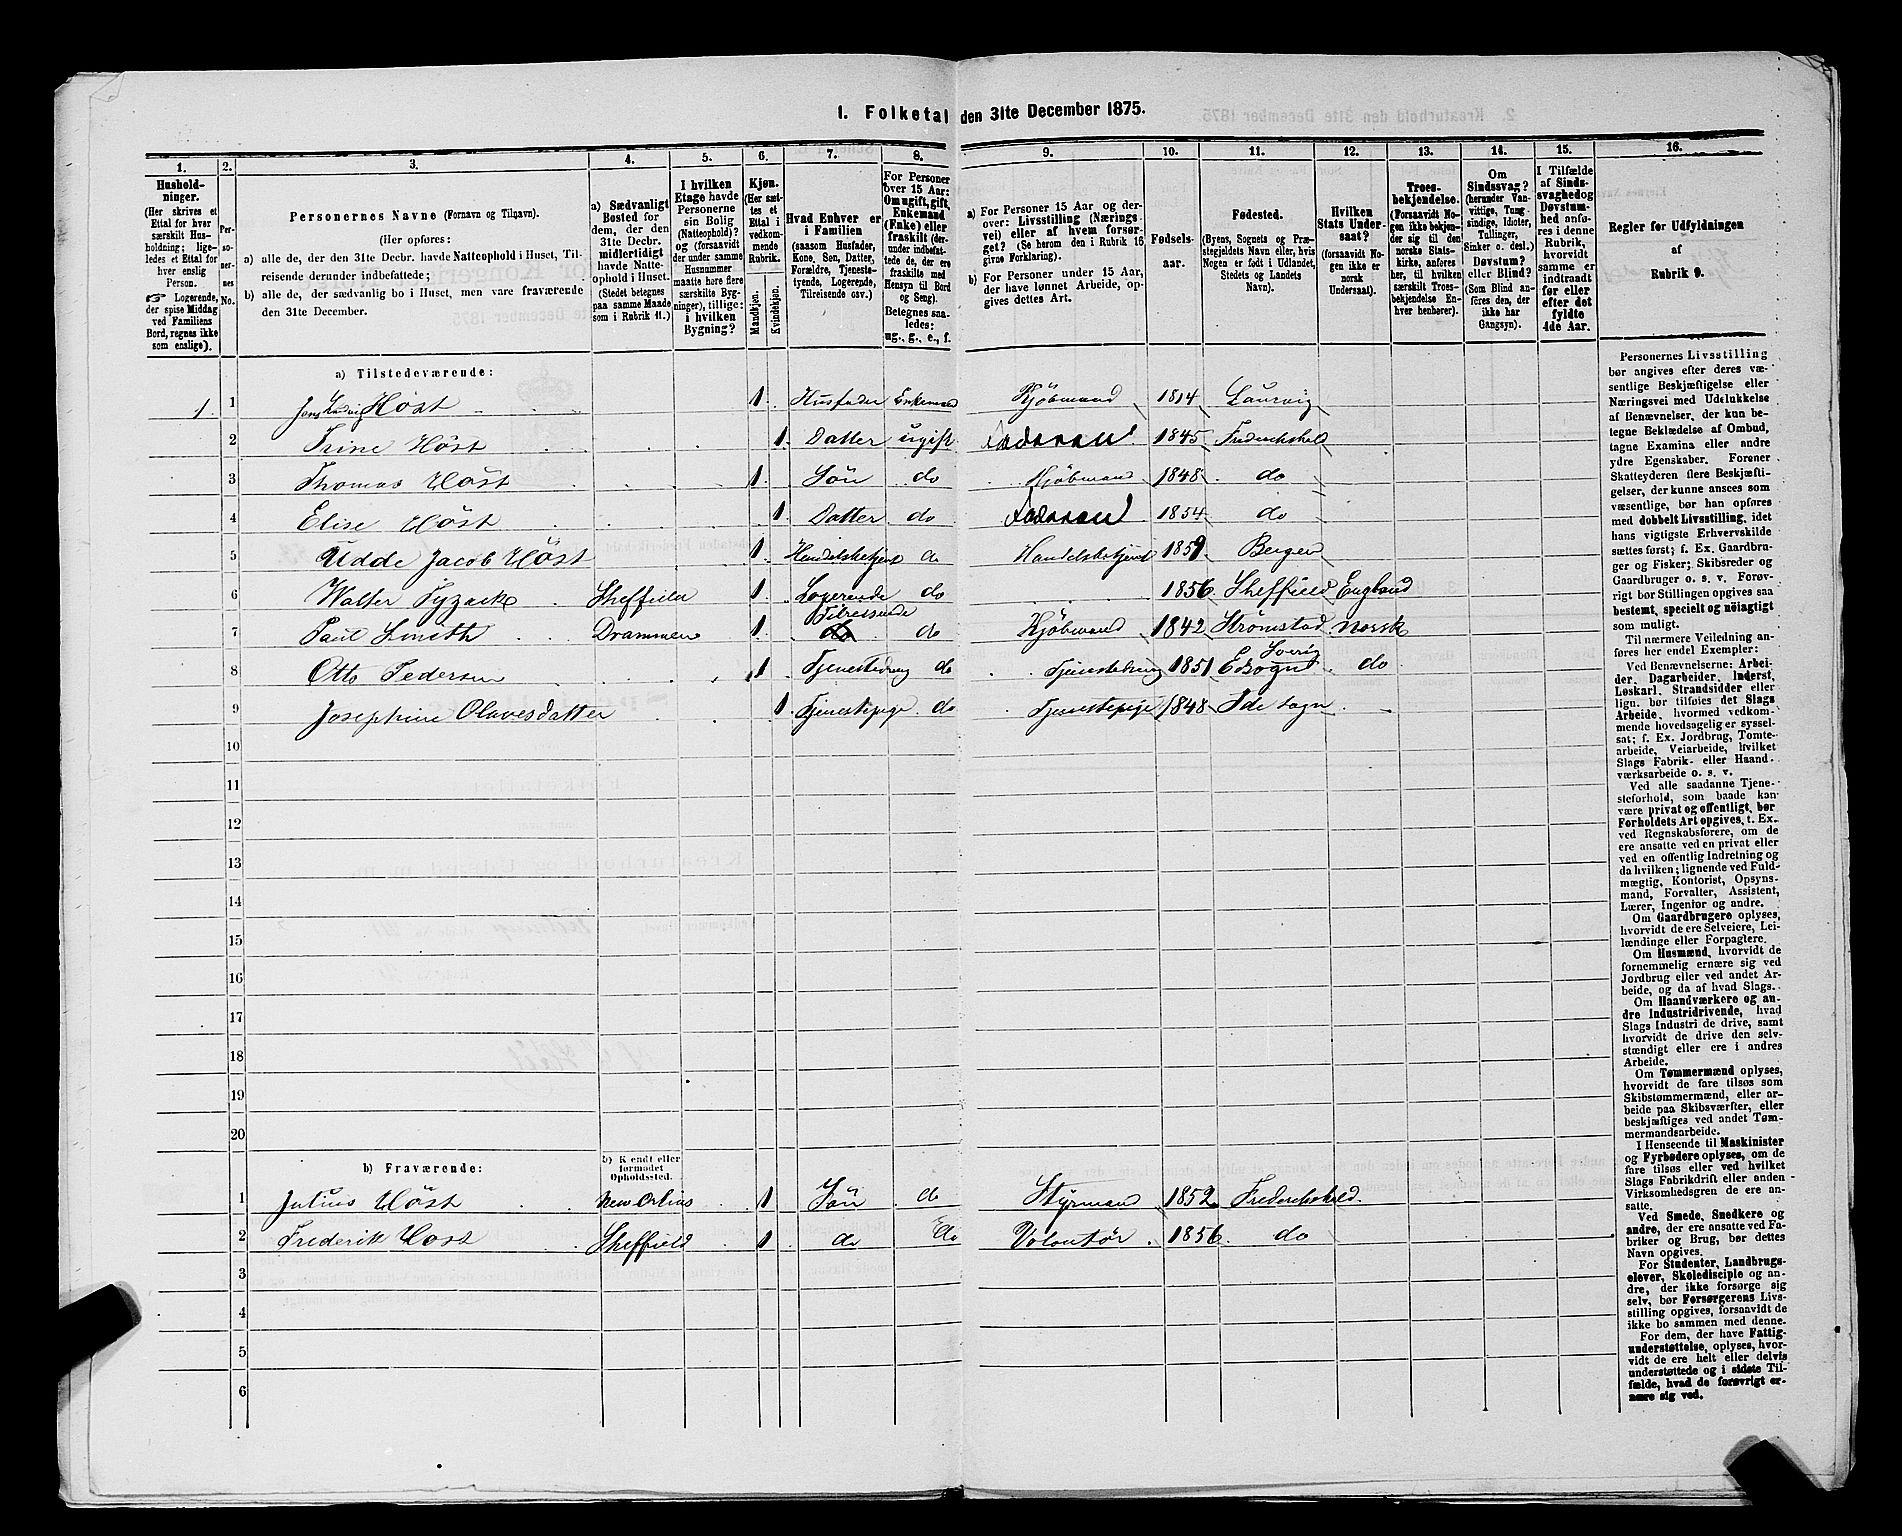 1. Folketal den 31te December 1875.
1. 2. 3. 4. 5. 6. 7. 8. 9. 10. 11. 12. 13. 14. 15. 16.
Hushold-
ninger.
(Her skrives et
Ettal for hver
særskilt Hus-
holdning; lige-
ledes et Ettal for
hver enslig
Person.
☞ Logerende,
der spise Middag
ved Familiens
Bord, regnes ikke
som enslige).
Per-
so-
ner-
nes
No.
Personernes Navne (Fornavn og Tilnavn).
(Her opføres:
a) alle de, der den 31te Decbr. havde Natteophold i Huset, Til-
reisende derunder indbefattede;
b) alle de, der sædvanlig bo i Huset, men vare fraværende
den 31te December.
a) Sædvanligt
Bosted for
dem, der den
31te Decbr.
midlertidigt
havde Natte-
ophold i Huset.
(Stedet betegnes
paa samme Maade
som i Rubrik 11.)
I hvilken
Etage havde
Personerne
sin Bolig
(Natteophold)?
og (forsaavidt
der under samme
Husnummer
maatte høre flere
særskilte Byg-
ninger), tillige:
i hvilken
Bygning?
Kjøn.
(Her sæt-
tes et
Ettal i
vedkom-
mende
Rubrik.
Mandkjøn.
Kvindekjøn.
Hvad Enhver er
i Familien
(saasom Husfader,
Kone, Søn, Datter,
Forældre, Tjeneste-
tyende, Logerende,
Tilreisende osv.)
For Personer
over 15 Aar:
Om ugift, gift,
Enkemand
(Enke) eller
fraskilt (der-
under indbefat-
tede de, der ere
fraskilte med
Hensyn til Bord
og Seng).
Betegnes saa-
ledes:
ug., g., e., f.
a) For Personer 15 Aar og der-
over: Livsstilling (Nærings-
vei) eller af hvem forsør-
get? (Se herom den i Rubrik 16
givne Forklaring).
b) For Personer under 15 Aar,
der have lønnet Arbeide, op-
gives dettes Art.
Fødsels-
aar.
Fødested.
(Byens, Sognets og Præ-
stegjeldets Navn eller, hvis
Nogen er født i Udlandet,
Stedets og Landets
Navn).
Hvilken
Stats Under-
saat?
(forsaavidt No-
gen ikke er
norsk
Undersaat).
Troes-
bekjendelse.
(Forsaavidt No-
gen ikke bekjen-
der sig til den
norske Stats-
kirke, anføres
her, til hvilken
særskilt Troes-
bekjendelse En-
hver henhører).
Om
Sindssvag?
(herunder Van-
vittige, Tung-
sindige, Idioter,
Tullinger,
Sinker o. desl.)
Døvstum?
eller Blind?
(Som Blind an-
føres den, der
ikke har
Gangsyn).
I Tilfælde
af Sinds-
svaghed og
Døvstum-
hed anfø-
res i denne
Rubrik,
hvorvidt
samme er
indtraadt
før eller
efter det
fyldte
4de Aar.
Regler for Udfyldningen
af
Rubrik 9.
a) Tilstedeværende:
1. 1 Jens Ludvig Høst 1 Husfader Enkemand Kjøbmand 1814 Laurvig
2 Trine Høst 1 Datter ugift Faderen 1845 Frederikshald
3 Thomas Høst 1 Søn do Kjøbmand 1848 do
4 Elise Høst 1 Datter do Faderen 1854 do
5 Udde Jacob Høst 1 Handelsbetjent do Handelsbetjent 1859 Bergen
6 Walter Tyzack Sheffield 1 Logerende do 1856 Sheffield England
7 Paul Smith Drammen 1 Tilreisende do do Kjøbmand 1842 Strømstad Norsk
8 Otto Pedersen 1 Tjenestedreng do Tjenestedreng 1851 Ed Sogn Sverig do
9 Josephine Olavesdatter 1 Tjenestepige do Tjenestepige 1848 Ide Sogn
10
11
12
13
14
15
16
17
18
19
20
b) Fraværende:
b) Kjendt eller
formodet
Opholdssted.
1 Julius Høst New Orlins 1 Søn do Styrmand 1852 Frederikshald
2 Frederik Høst Sheffield 1 do do Volontør 1856 do
3
4
5
6
Personernes Livsstilling
bør angives efter deres væ-
sentlige Beskjæftigelse eller
Næringsvei med Udelukkelse
af Benævnelser, der kun be-
tegne Beklædelse af Ombud,
tagne Examina eller andre
ydre Egenskaber. Forener
Skatteyderen flere Beskjæfti-
gelser, der kunne ansees som
væsentlige, bør han opføres
med dobbelt Livsstilling, idet
hans vigtigste Erhvervskilde
sættes først; f. Ex. Gaardbru-
ger og Fisker; Skibsreder og
Gaardbruger o. s. v. Forøv-
rigt bør Stillingen opgives saa
bestemt, specielt og nöiagtigt
som muligt.
Til nærmere Veiledning an-
føres her endel Exempler:
Ved Benævnelserne: Arbei-
der, Dagarbeider, Inderst,
Løskarl, Strandsidder eller
lign. bør tilføies det Slags
Arbeide, hvormed vedkom-
mende hovedsagelig er syssel-
sat; f. Ex. Jordbrug, Tomte-
arbeide, Veiarbeide, hvilket
Slags Fabrik- eller Haand-
værksarbeide o. s. v.
Ved alle saadanne Tjene-
steforhold, som baade kan
være privat og offentligt, bør
Forholdets Art opgives, t. Ex.
ved Regnskabsførere, om de
ere ansatte ved en privat eller
ved en offentlig Indretning og
da hvilken; lignende ved Fuld-
mægtig, Kontorist, Opsyns-
mand, Forvalter, Assistent,
Lærer, Ingeniør og andre.
Om Gaardbrugere oplyses,
hvorvidt de ere Selveiere, Lei-
lændinge eller Forpagtere.
Om Husmænd, hvorvidt de
fornemmelig ernære sig ved
Jordbrug eller ved andet Ar-
beide, og da af hvad Slags.
Om Haandværkere og an-
dre Industridrivende, hvad
Slags Industri de drive, samt
hvorvidt de drive den selv-
stændigt eller ere i andres
Arbeide.
Om Tømmermænd oplyses,
hvorvidt de fare tilsøs som
Skibstømmermænd, eller ar-
beide paa Skibsværfter, eller
beskjæftiges ved andet Tøm-
mermandsarbeide.
I Henseende til Maskinister
og Fyrbødere oplyses, om de
fare tilsøs eller ved hvilket
Slags Fabrikdrift eller anden
Virksomhedsgren de ere an-
satte.
Ved Smede, Snedkere og
andre, der ere ansatte ved Fa-
briker og Brug, bør dettes
Navn opgives.
For Studenter, Landbrugs-
elever, Skoledisciple og an-
dre, der ikke forsørge sig
selv, bør Forsørgerens Livs-
stilling opgives, forsaavidt de
ikke bo sammen med denne.
For dem, der have Fattig-
understøttelse, oplyses, hvor-
vidt de ere helt eller delvis
understøttede og i sidste Til-
fælde, hvad de forøvrigt er-
nære sig ved.